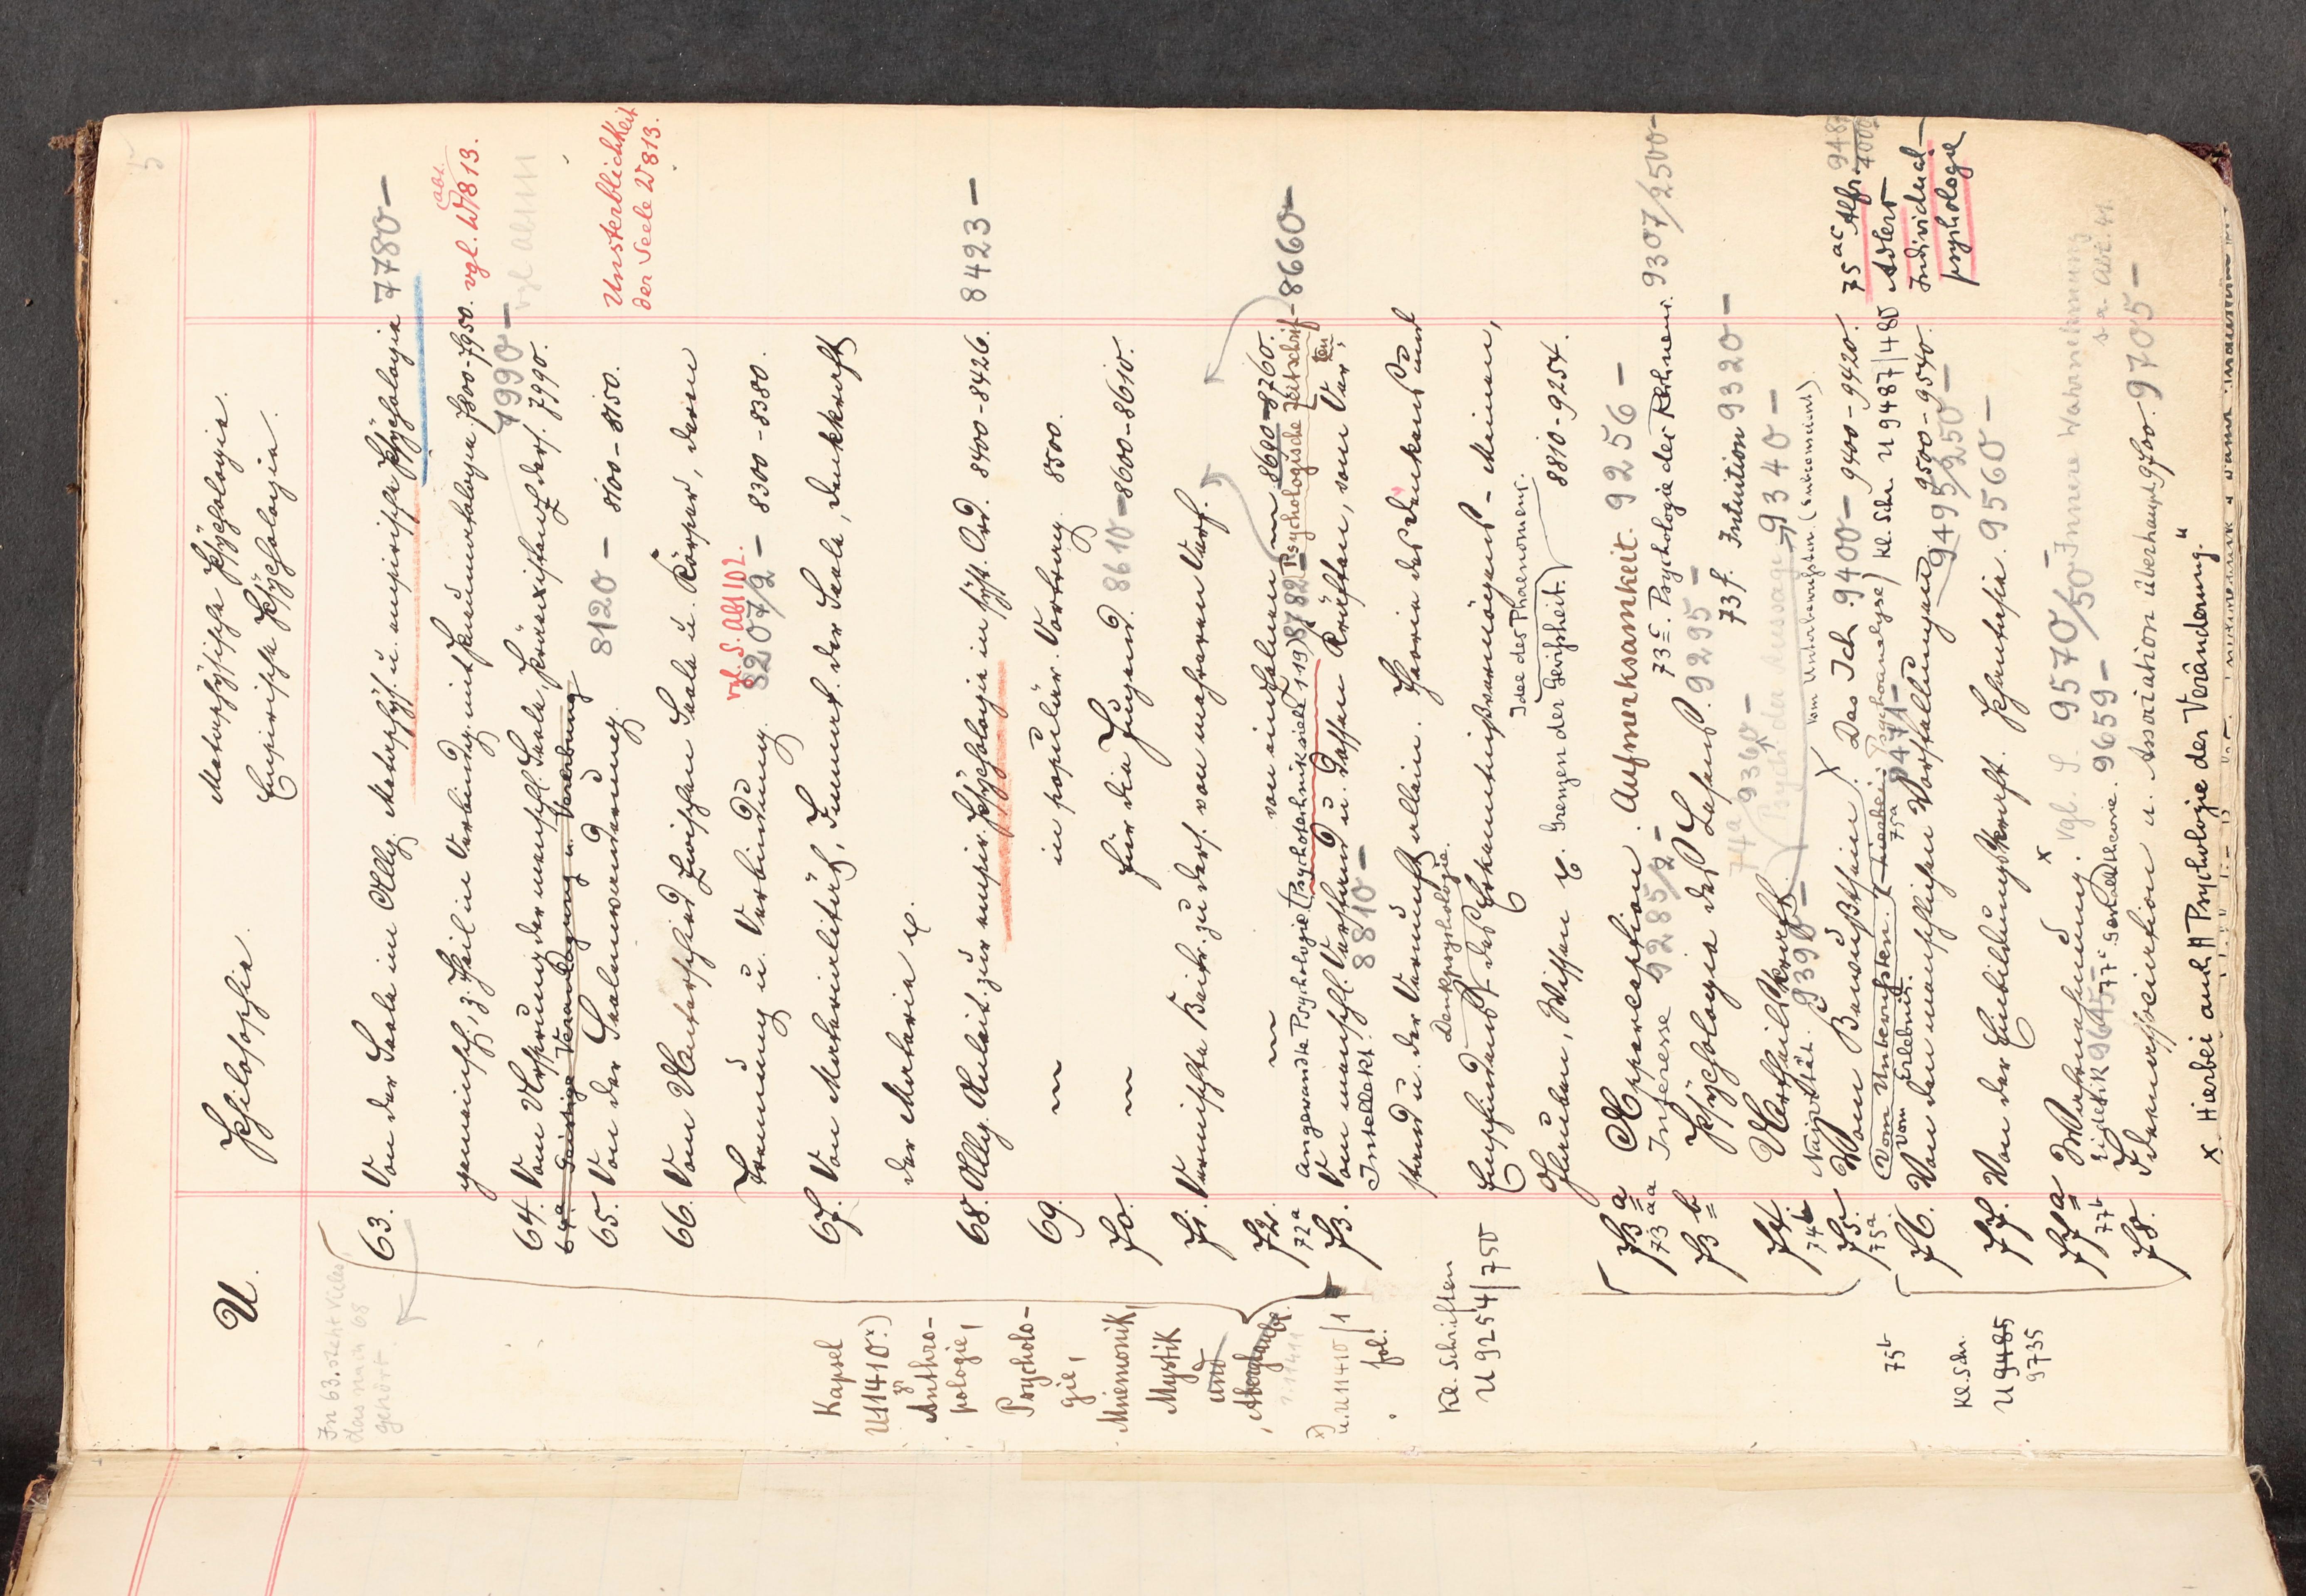 5
U. Philosophie. Metaphysische Psychologie.
Empirische Psychologie.
In 63. steht Vieles,
das nach 68
gehört.
63. Von der Seele im Allg. Metaphys. u. empirische Psychologie 7780 –
gemeinsch., z. Theil in Verbindg. mit Pneumatologie. 7800-7950. vgl. abs. W 813.
7990 – vgl
64. Vom Ursprung der menschl. Seele, Präexistenz ders. 7990.
64a. Geistige Veranlagung u. Vererbung
65. Von der Seelenwanderung. 8120 – 8100-8150.
Unsterblichkeit
der Seele W 813.
66. Vom Unterschied zwischen Seele u. Körper, deren
Trennung u. Verbindung. 8207/2 – 8300-8380.
vgl. S. Abt 102.
67. Von Materialität, Immat. der Seele, Denkkraft
der Materie pp.
68. Allg. Anleit. zur empir. Psychologie in syst. Ord. 8400-8426. 8423 –
69. " in populär. Vortrag. 8500.
70. " für die Jugend. 8610 – 8600-8610.
71. Vermischte Beitr. zu ders. von mehreren Verf.
72. " von einzelnen " 8690-8760. 8660 –
72a Angewandte Psychologie. (Psychotechnik siele 119) 8782 – Psychologische Zeitschriften
73. Vom menschl. Verstand u. dessen Kräften, vom Ver-
Intellekt. 8810 –
stand u. der Vernunft allein. Theorie des Denkens und
Denkpsychologie.
Empfindens, des Erkenntnißvermögens – Meinen,
Idee des Phaenomens.
Glauben, Wissen pp. Grenzen der Gewißheit. 8810-9254.
Kapsel
U 11410 x)
Anthro-
pologie,
Psycholo-
gie,
Mnemonik,
Mystik
und
Aberglaube.
x) u. U 11410/1
fol.
Kl. Schriften
U 9254/750
73a Apperception. Aufmerksamkeit. 9256 –
73aa Interesse 9285/2 – 73c. Psychologie des Rechnens. 9307/2500 –
73b Psychologie des Lesens. 9295 –
73f. Intuition 9320 –
74a 9360 –
Psych. der Aussage 9340 –
74. Urtheilskraft.
74b Naivität. 9390 – Vom Unterbewußten (Subconscient)
75. Vom Bewußtsein. X Das Ich 9400 – 9400-9420.
75a Vom Unbewußten. (hierbei: Psychoanalyse) Kl. Schr. U 9487/480
75b Vom Erlebnis. 75a 9471 –
75ac Alfr. Adlers
Individual-
psychologie
948
4000
76. Von den menschlichen Vorstellungen 9500-9540.
9495/250 –
77. Von der Einbildungskraft. Phantasie. 9560 –
Kl. Schr.
U 9485
9735
77a Wahrnehmung. x vgl. S. 9570/50 – Innere Wahrnehmung
s. a. Abt. 41.
77b Eidetik 9645 – 77c 9659 –
78. Ideenassociation u. Association überhaupt. 9700. 9705 –
x Hierbei auch "Psychologie der Veränderung."